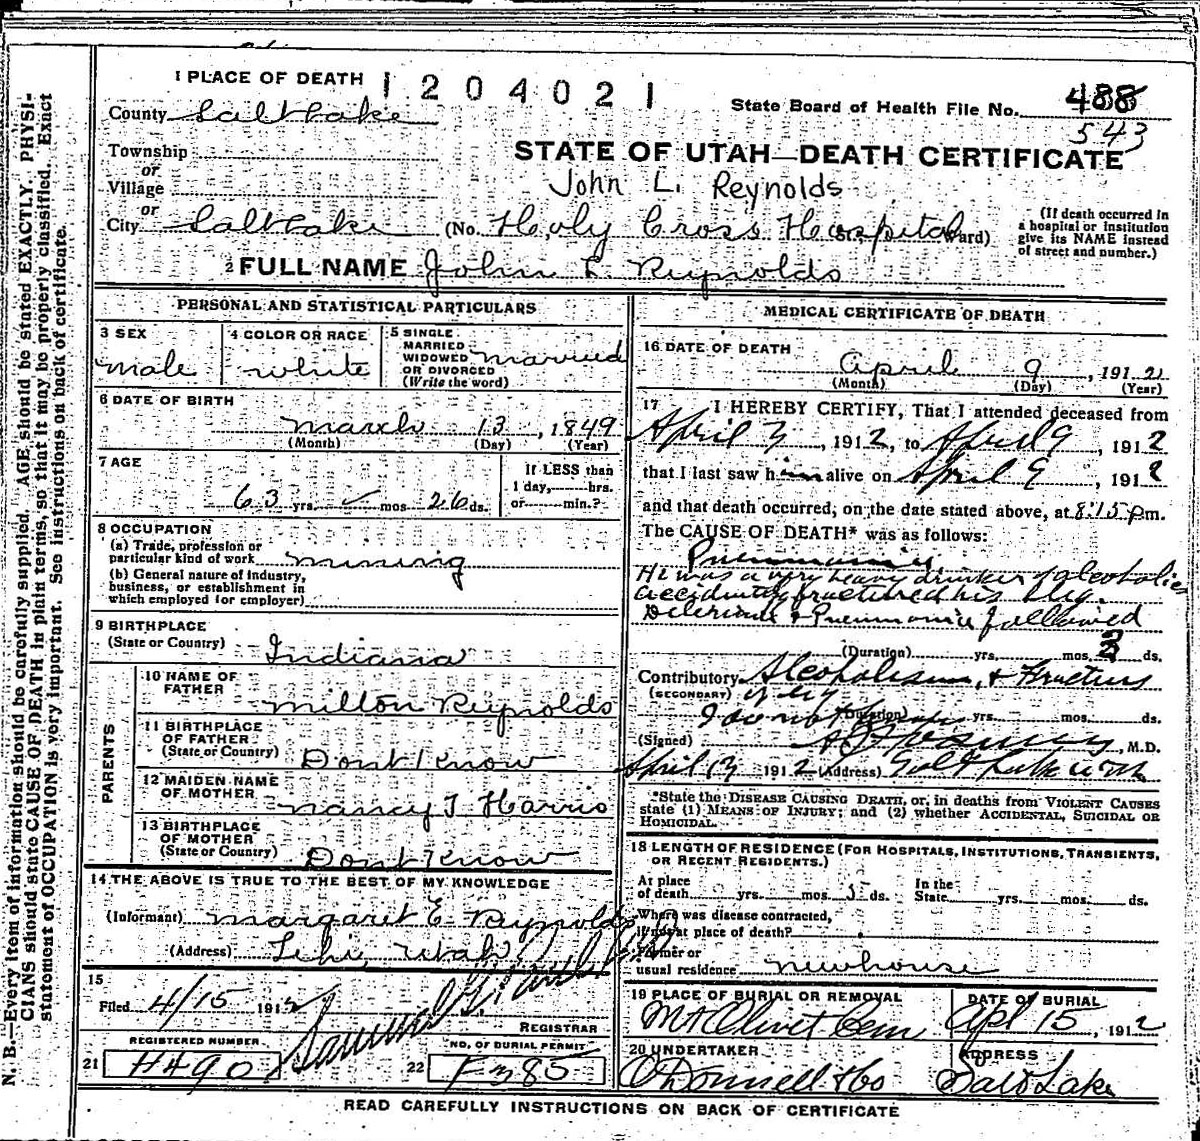 1 PLACE OF DEATH 1204021
State Board of Health File No. 488
543
County Salt Lake
STATE OF UTAH—DEATH CERTIFICATE
Township
or
Village
or
John L. Reynolds
City Salt Lake (No. Holy Cross Hospital Ward)
(If death occurred in a hospital or institution give its NAME instead of street and number.)
2 FULL NAME John L. Reynolds
PERSONAL AND STATISTICAL PARTICULARS
3 SEX male
4 COLOR OR RACE white
5 SINGLE, MARRIED, WIDOWED OR DIVORCED (Write the word) married
6 DATE OF BIRTH
March 13, 1849
(Month) (Day) (Year)
7 AGE
63 yrs. mos. 26 ds.
If LESS than 1 day, hrs. or min.?
8 OCCUPATION
(a) Trade, profession or particular kind of work mining
(b) General nature of industry, business, or establishment in which employed (or employer)
9 BIRTHPLACE (State or Country) Indiana
PARENTS
10 NAME OF FATHER Milton Reynolds
11 BIRTHPLACE OF FATHER (State or Country) Dont Know
12 MAIDEN NAME OF MOTHER Nancy J Harris
13 BIRTHPLACE OF MOTHER (State or Country) Dont Know
14 THE ABOVE IS TRUE TO THE BEST OF MY KNOWLEDGE
(Informant) Margaret E Reynolds
(Address) Lehi, Utah
15
Filed 4/15 1912 Samuel G. REGISTRAR
REGISTERED NUMBER
21 H490
NO. OF BURIAL PERMIT
22 F385
MEDICAL CERTIFICATE OF DEATH
16 DATE OF DEATH
April 9, 1912
(Month) (Day) (Year)
17 I HEREBY CERTIFY, That I attended deceased from
April 3, 1912, to April 9, 1912
that I last saw him alive on April 9, 1912
and that death occurred, on the date stated above, at 8:15 pm.
The CAUSE OF DEATH* was as follows:
Pneumonia.
He was a very heavy drinker of alcoholics
accidently fractured his leg.
Delerium & Pneumonia followed
(Duration) yrs. mos. 3 ds.
Contributory Alcoholism, & Fracture
(SECONDARY) of leg
(Duration) yrs. mos. ds.
(Signed) M.D.
April 13 1912 (Address) Salt Lake Utah
*State the DISEASE CAUSING DEATH, or, in deaths from VIOLENT CAUSES state (1) MEANS OF INJURY; and (2) whether ACCIDENTAL, SUICIDAL OR HOMICIDAL.
18 LENGTH OF RESIDENCE (FOR HOSPITALS, INSTITUTIONS, TRANSIENTS, OR RECENT RESIDENTS.)
At place of death yrs. mos. 5 ds. In the State yrs. mos. ds.
Where was disease contracted, if not at place of death?
Former or usual residence Newhouse
19 PLACE OF BURIAL OR REMOVAL
Mt Olivet Cem
DATE OF BURIAL
Apl 15, 1912
20 UNDERTAKER
O'Donnell & Co
ADDRESS
Salt Lake
READ CAREFULLY INSTRUCTIONS ON BACK OF CERTIFICATE
N. B.—Every item of information should be carefully supplied. AGE should be stated EXACTLY. PHYSI-
CIANS should state CAUSE OF DEATH in plain terms, so that it may be properly classified. Exact
statement of OCCUPATION is very important. See instructions on back of certificate.